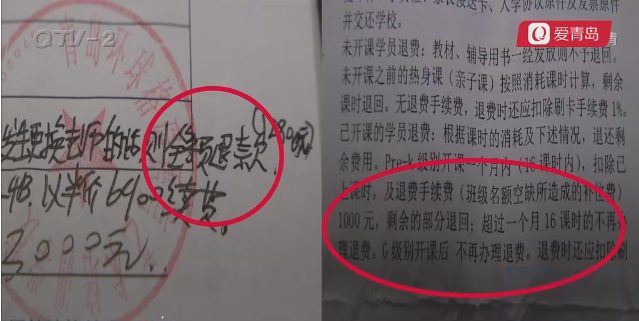 QTV-2
爱青岛
青岛环球
发生更换老师的话则全额退款
以半价6900续费
2000元
并交还学校。
未开课学员退费：教材、辅导用书一经发放则不予退回。
未开课之前的热身课（亲子课）按照消耗课时计算，剩余
课时退回。无退费手续费，退费时还应扣除刷卡手续费1%。
已开课的学员退费：根据课时的消耗及下述情况，退还剩
余费用。Pre-k级别开课一个月内（16课时内），扣除已
上课时，及退费手续费（班级名额空缺所造成的补位费）
1000元，剩余的部分退回；超过一个月16课时的不再办
理退费。G级别开课后 不再办理退费。退费时还应扣除刷